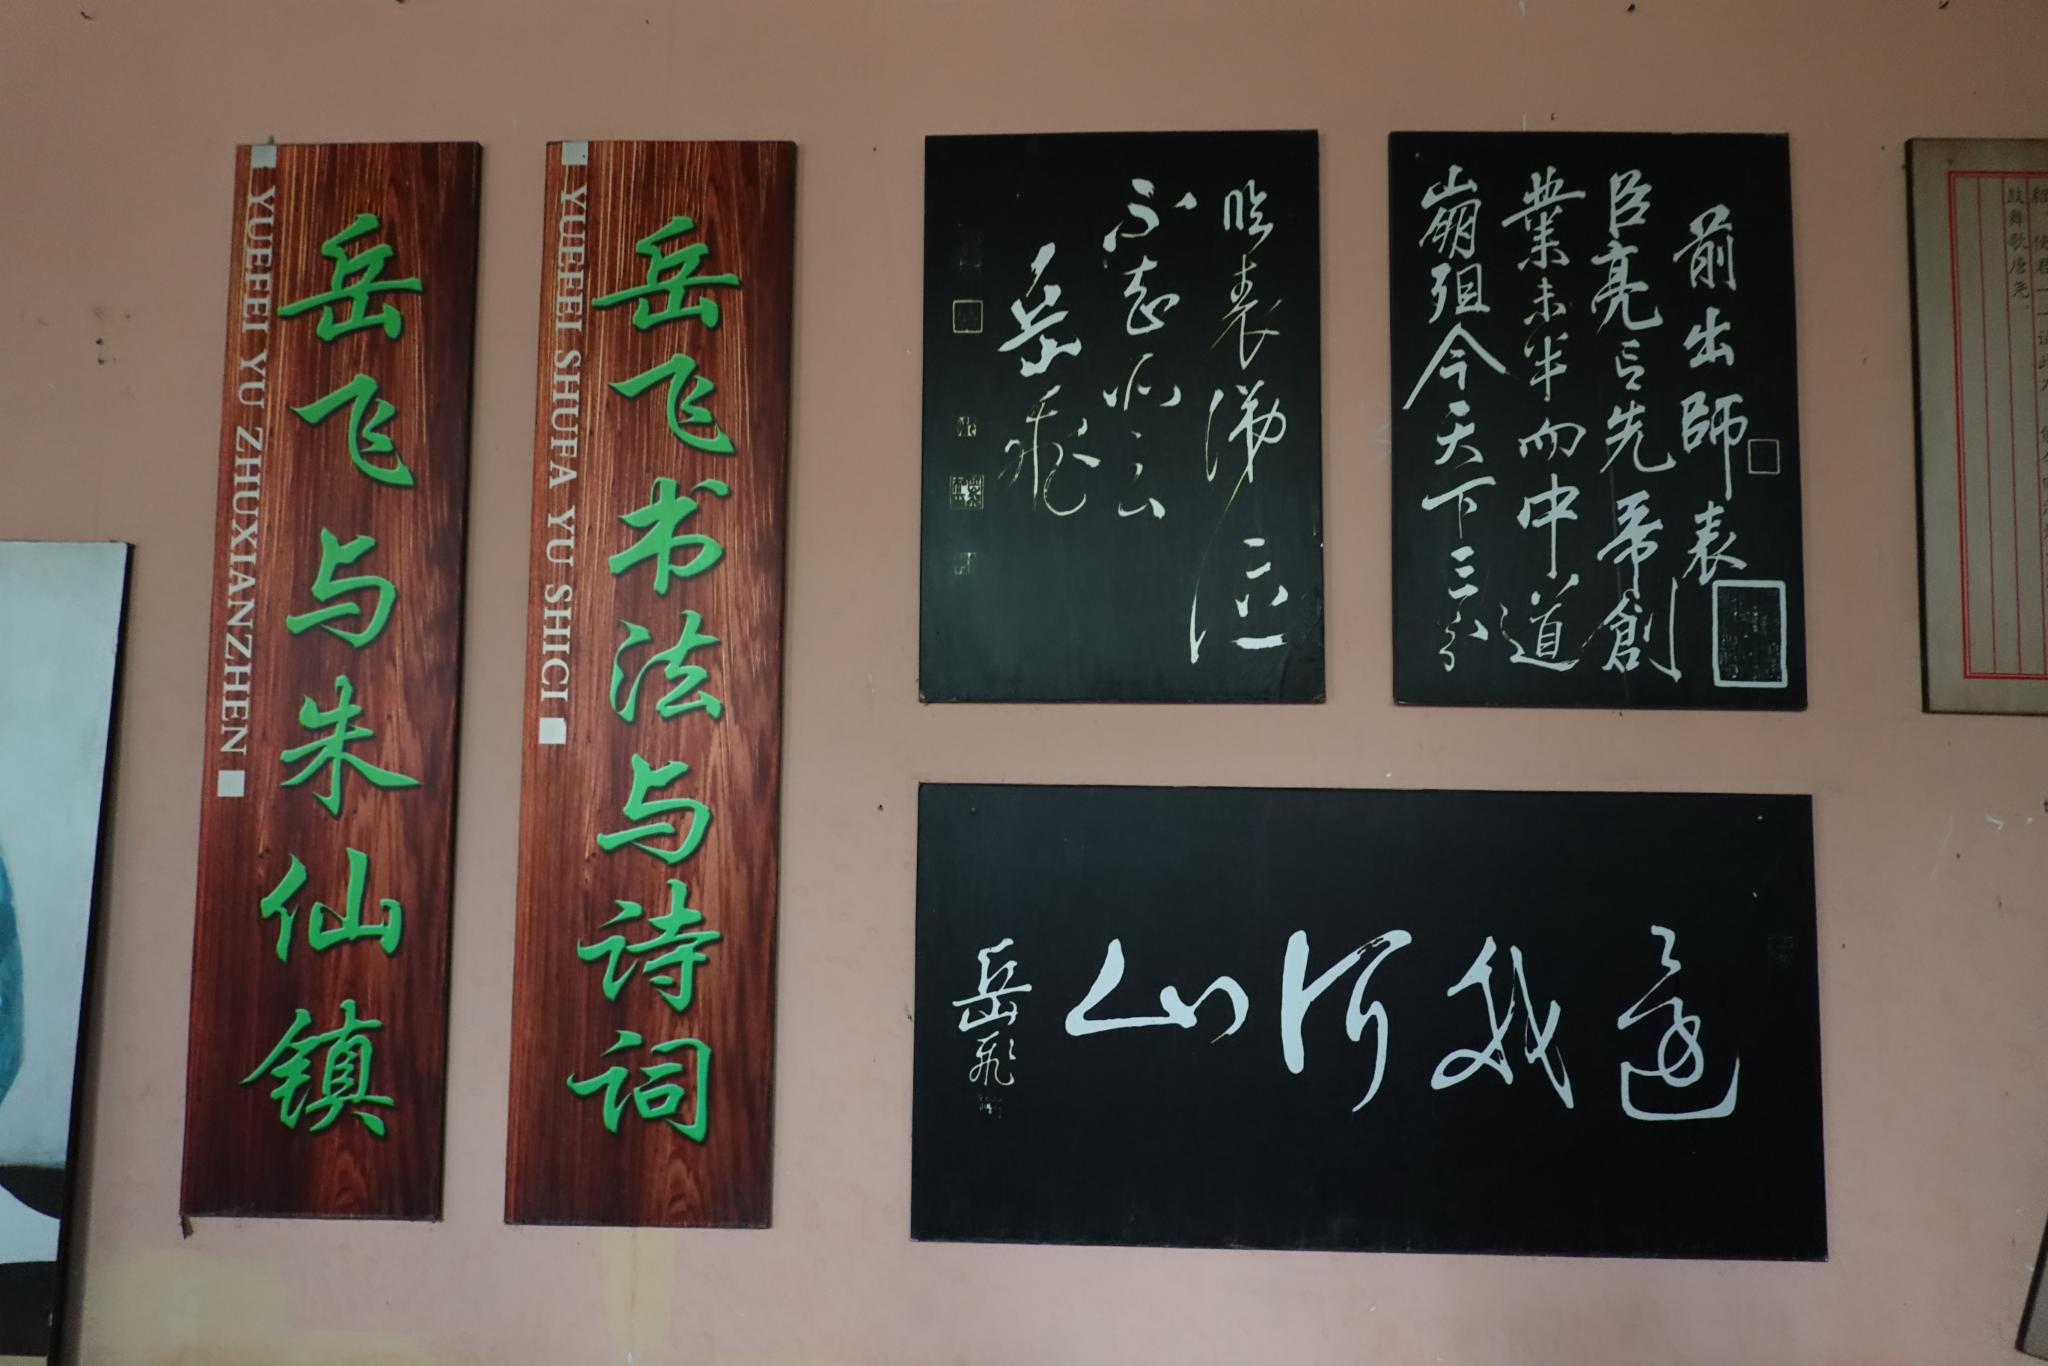 岳飞与朱仙镇
YUEFEI YU ZHUXIANZHEN
岳飞书法与诗词
YUEFEI SHUFA YU SHICI
前出師表
臣亮言先帝創
業未半而中道
崩殂今天下三分
臨表涕泣
不知所云
岳飛
還我河山
岳飛
鼓舞歌唐尧。